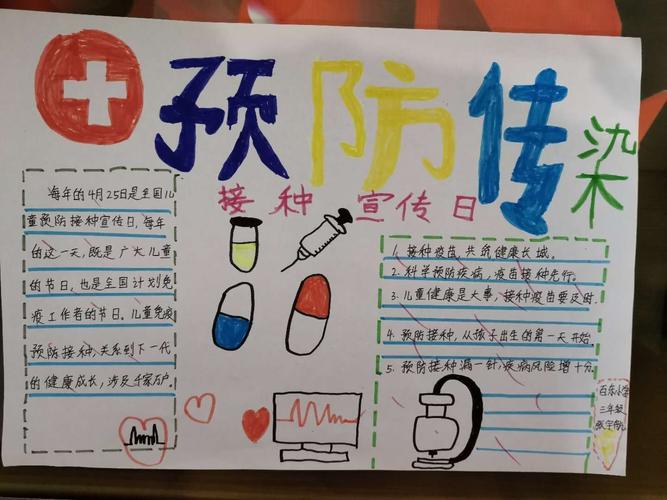 预防传染
接种宣传日
每年的4月25日是全国儿
童预防接种宣传日,每年
的这一天,既是广大儿童
的节日,也是全国计划免
疫工作者的节日。儿童免疫
预防接种,关系到下一代
的健康成长,涉及千家万户。
1. 接种疫苗,共筑健康长城。
2. 科学预防疾病,疫苗接种先行。
3. 儿童健康是大事,接种疫苗要及时.
4. 预防接种,从孩子出生的第一天开始.
5. 预防接种漏一针,疾病风险增十分.
百东小学
三年级
张宇